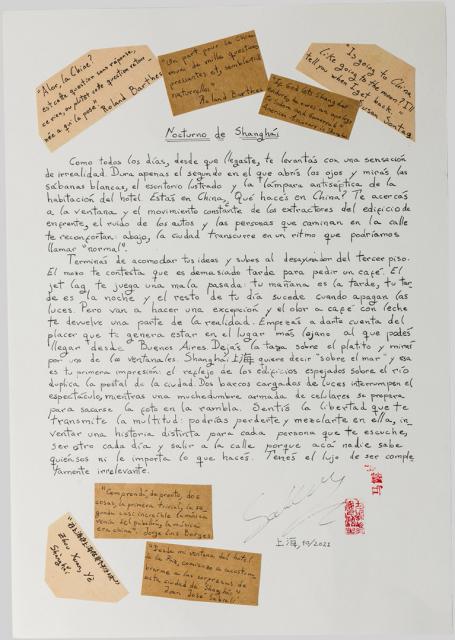 "Alor, la Chine?
est cette question sans réponse,
ou plutôt cette question
née a qui la pose"
Roland Barthes
"On part pour la Chine
muni de mille questions
pressantes et, semblait-il,
naturelles"
Roland Barthes
"If God lets Shanghai
endure, he owes an apology
to Sodom and Gomorrah"
"Is going to China
like going to the moon? I'll
tell you when I get back."
Susan Sontag
Nocturno de Shanghái
Como todos los días, desde que llegaste, te levantás con una sensación
de irrealidad. Dura apenas el segundo en el que abrís los ojos y mirás las
sábanas blancas, el escritorio lustrado y la lámpara antiséptica de la
habitación del hotel. Estás en China. ¿Qué hacés en China? Te acercás
a la ventana, y el movimiento constante de los extractores del edificio de
enfrente, el ruido de los autos y las personas que caminan en la calle
te reconfortan: abajo, la ciudad transcurre en un ritmo que podríamos
llamar "normal".
Terminás de acomodar tus ideas y subes al desayunador del tercer piso.
El mozo te contesta que es demasiado tarde para pedir un café. El
jet lag te juega una mala pasada: tu mañana es la tarde, tu tar
de es la noche y el resto de tu día sucede cuando apagan las
luces. Pero van a hacer una excepción y el olor a café con leche
te devuelve una parte de la realidad. Empezás a darte cuenta del
placer que te genera estar en el lugar más lejano al que podés
llegar desde Buenos Aires. Dejás la taza sobre el platito y mirás
por uno de los ventanales. Shanghái, 上海, quiere decir "sobre el mar" y esa
es tu primera impresión: el reflejo de los edificios espejados sobre el río
duplica la postal de la ciudad. Dos barcos cargados de luces interrumpen el
espectáculo, mientras una muchedumbre armada de celulares se prepara
para sacarse la foto en la rambla. Sentís la libertad que te
transmite la multitud: podrías perderte y mezclarte en ella, in
ventar una historia distinta para cada persona que te escuche,
ser otro cada día y salir a la calle porque acá nadie sabe
quién sos ni le importa lo que hacés. Tenés el lujo de ser comple
tamente irrelevante.
"Comprendí, de pronto, dos
cosas, la primera trivial, la se
gunda casi increíble: la música
venía del pabellón, la música
era china". Jorge Luis Borges
Zhou Xuan, Ye
Shanghai
"Desde mi ventana del hotel
de la Paz, comienzo a acostum
brarme a las sorpresas de
esta ciudad de Shanghái"
Juan José Sebreli
上海, 10/2021